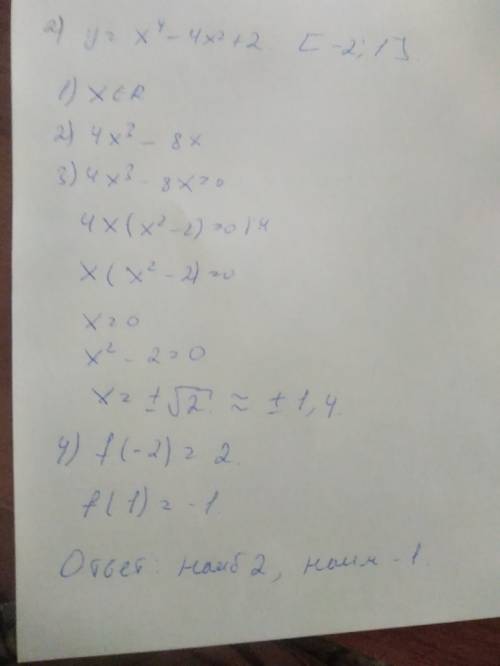 2) y = x⁴ - 4x² + 2 [-2; 1]
1) x ∈ R
2) 4x³ - 8x
3) 4x³ - 8x = 0
4x(x² - 2) = 0 | 4
x(x² - 2) = 0
x = 0
x² - 2 = 0
x = ±√2 ≈ ± 1,4.
4) f(-2) = 2.
f(1) = -1
Ответ: наиб 2, наим -1.